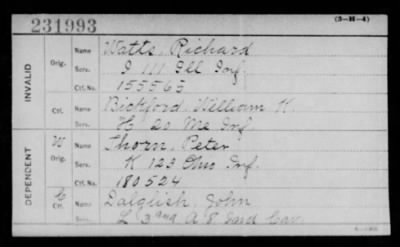 231993
(3-H-4)
INVALID
Orig. Name Watts, Richard
Serv. I 111 Ill Inf.
Ctf. No. 155565
Ctf. Name Bickford, William K.
Serv. H 20 Me Inf.
DEPENDENT
W Orig. Name Thorn, Peter
Serv. K 123 Ohio Inf.
Ctf. No. 180524
Ctf. Name Dalglish, John
Serv. L 3 A 8 Ind Cav.